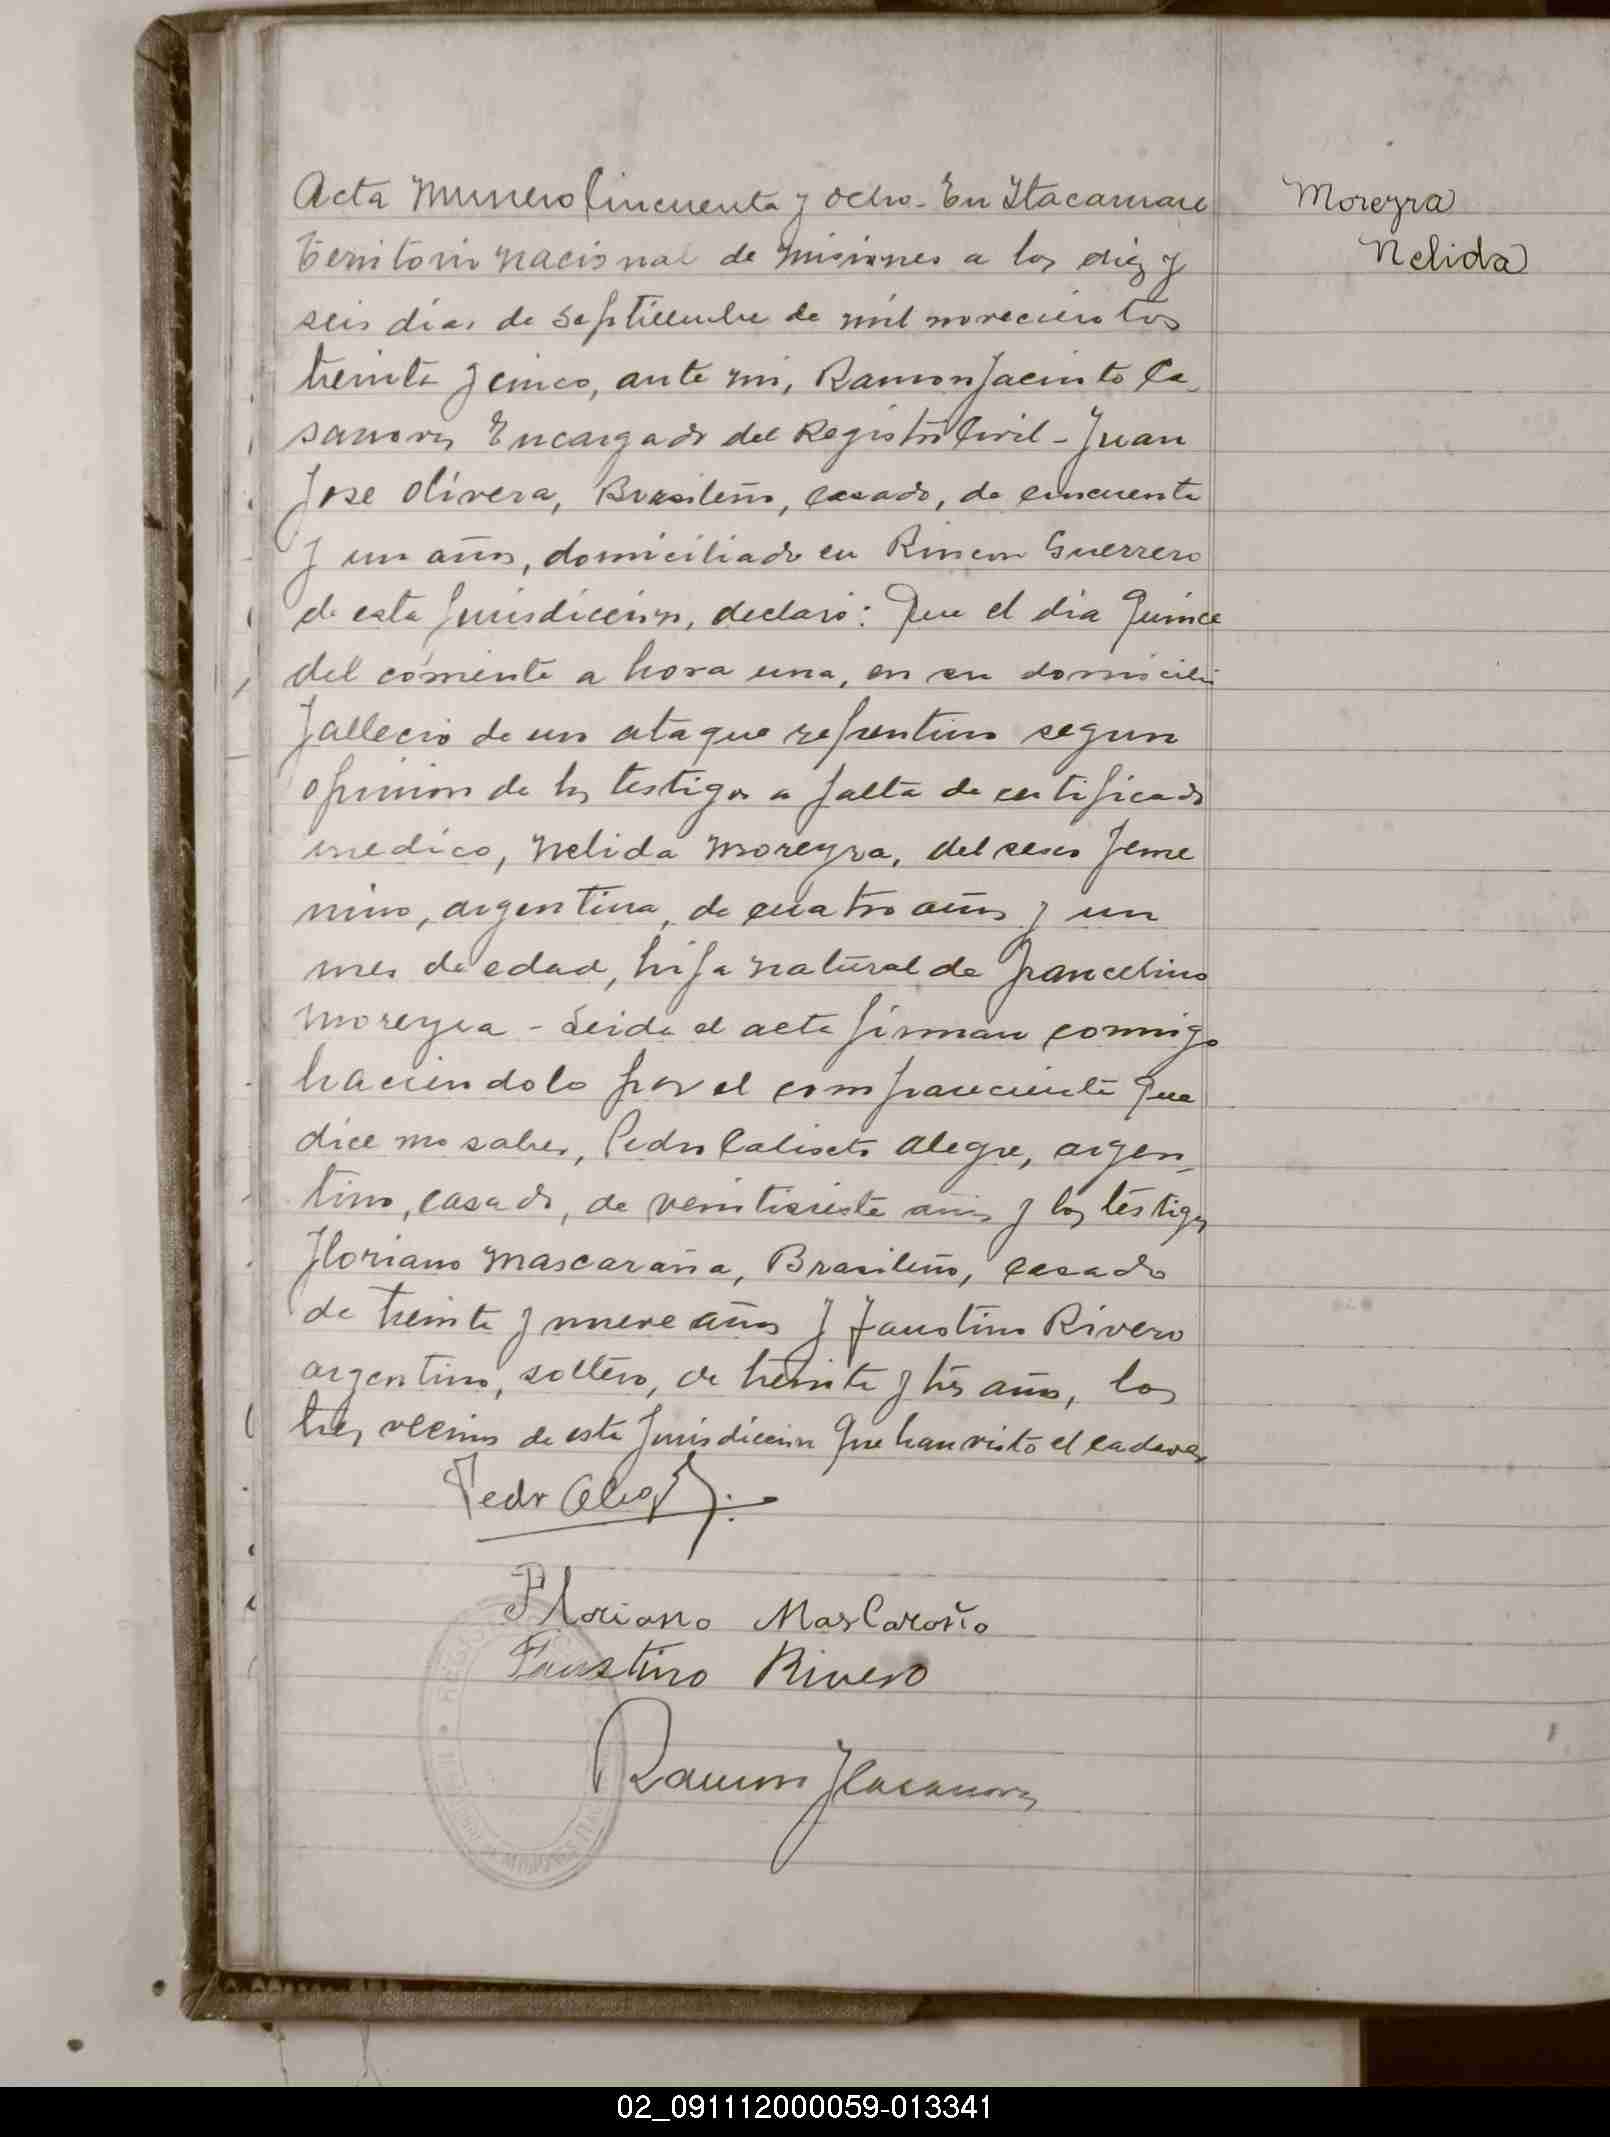 Acta Numero Cincuenta y ocho - En Itacaruare
Territorio Nacional de Misiones a los diez y
seis dias de Septiembre de mil novecientos
treinta y cinco, ante mi, Ramon Jacinto Ca-
sanova Encargado del Registro Civil - Juan
Jose Olivera, Brasileño, casado, de cincuenta
y un años, domiciliado en Rincon Guerrero
de esta Jurisdiccion, declaró: Que el dia Quince
del corriente a hora una, en su domicilio
fallecio de un ataque repentino segun
opinion de los testigos a falta de certificado
medico, Nelida Moreyra, del sexo feme
nino, argentina, de cuatro años y un
mes de edad, hija natural de Francelina
Moreyra - Leida el acta firman conmigo
haciendolo por el compareciente que
dice no saber, Pedro Calisto Alegre, argen-
tino, casado, de veintisiete años y los testigos
Floriano Mascaraña, Brasileño, casado
de treinta y nueve años y Faustino Rivero
argentino, soltero, de treinta y tres años, los
tres vecinos de esta Jurisdiccion que han visto el cadaver
Pedro Alegre
Floriano Mascaroño
Faustino Rivero
Ramon J Casanova
Moreyra
Nelida
02_091112000059-013341